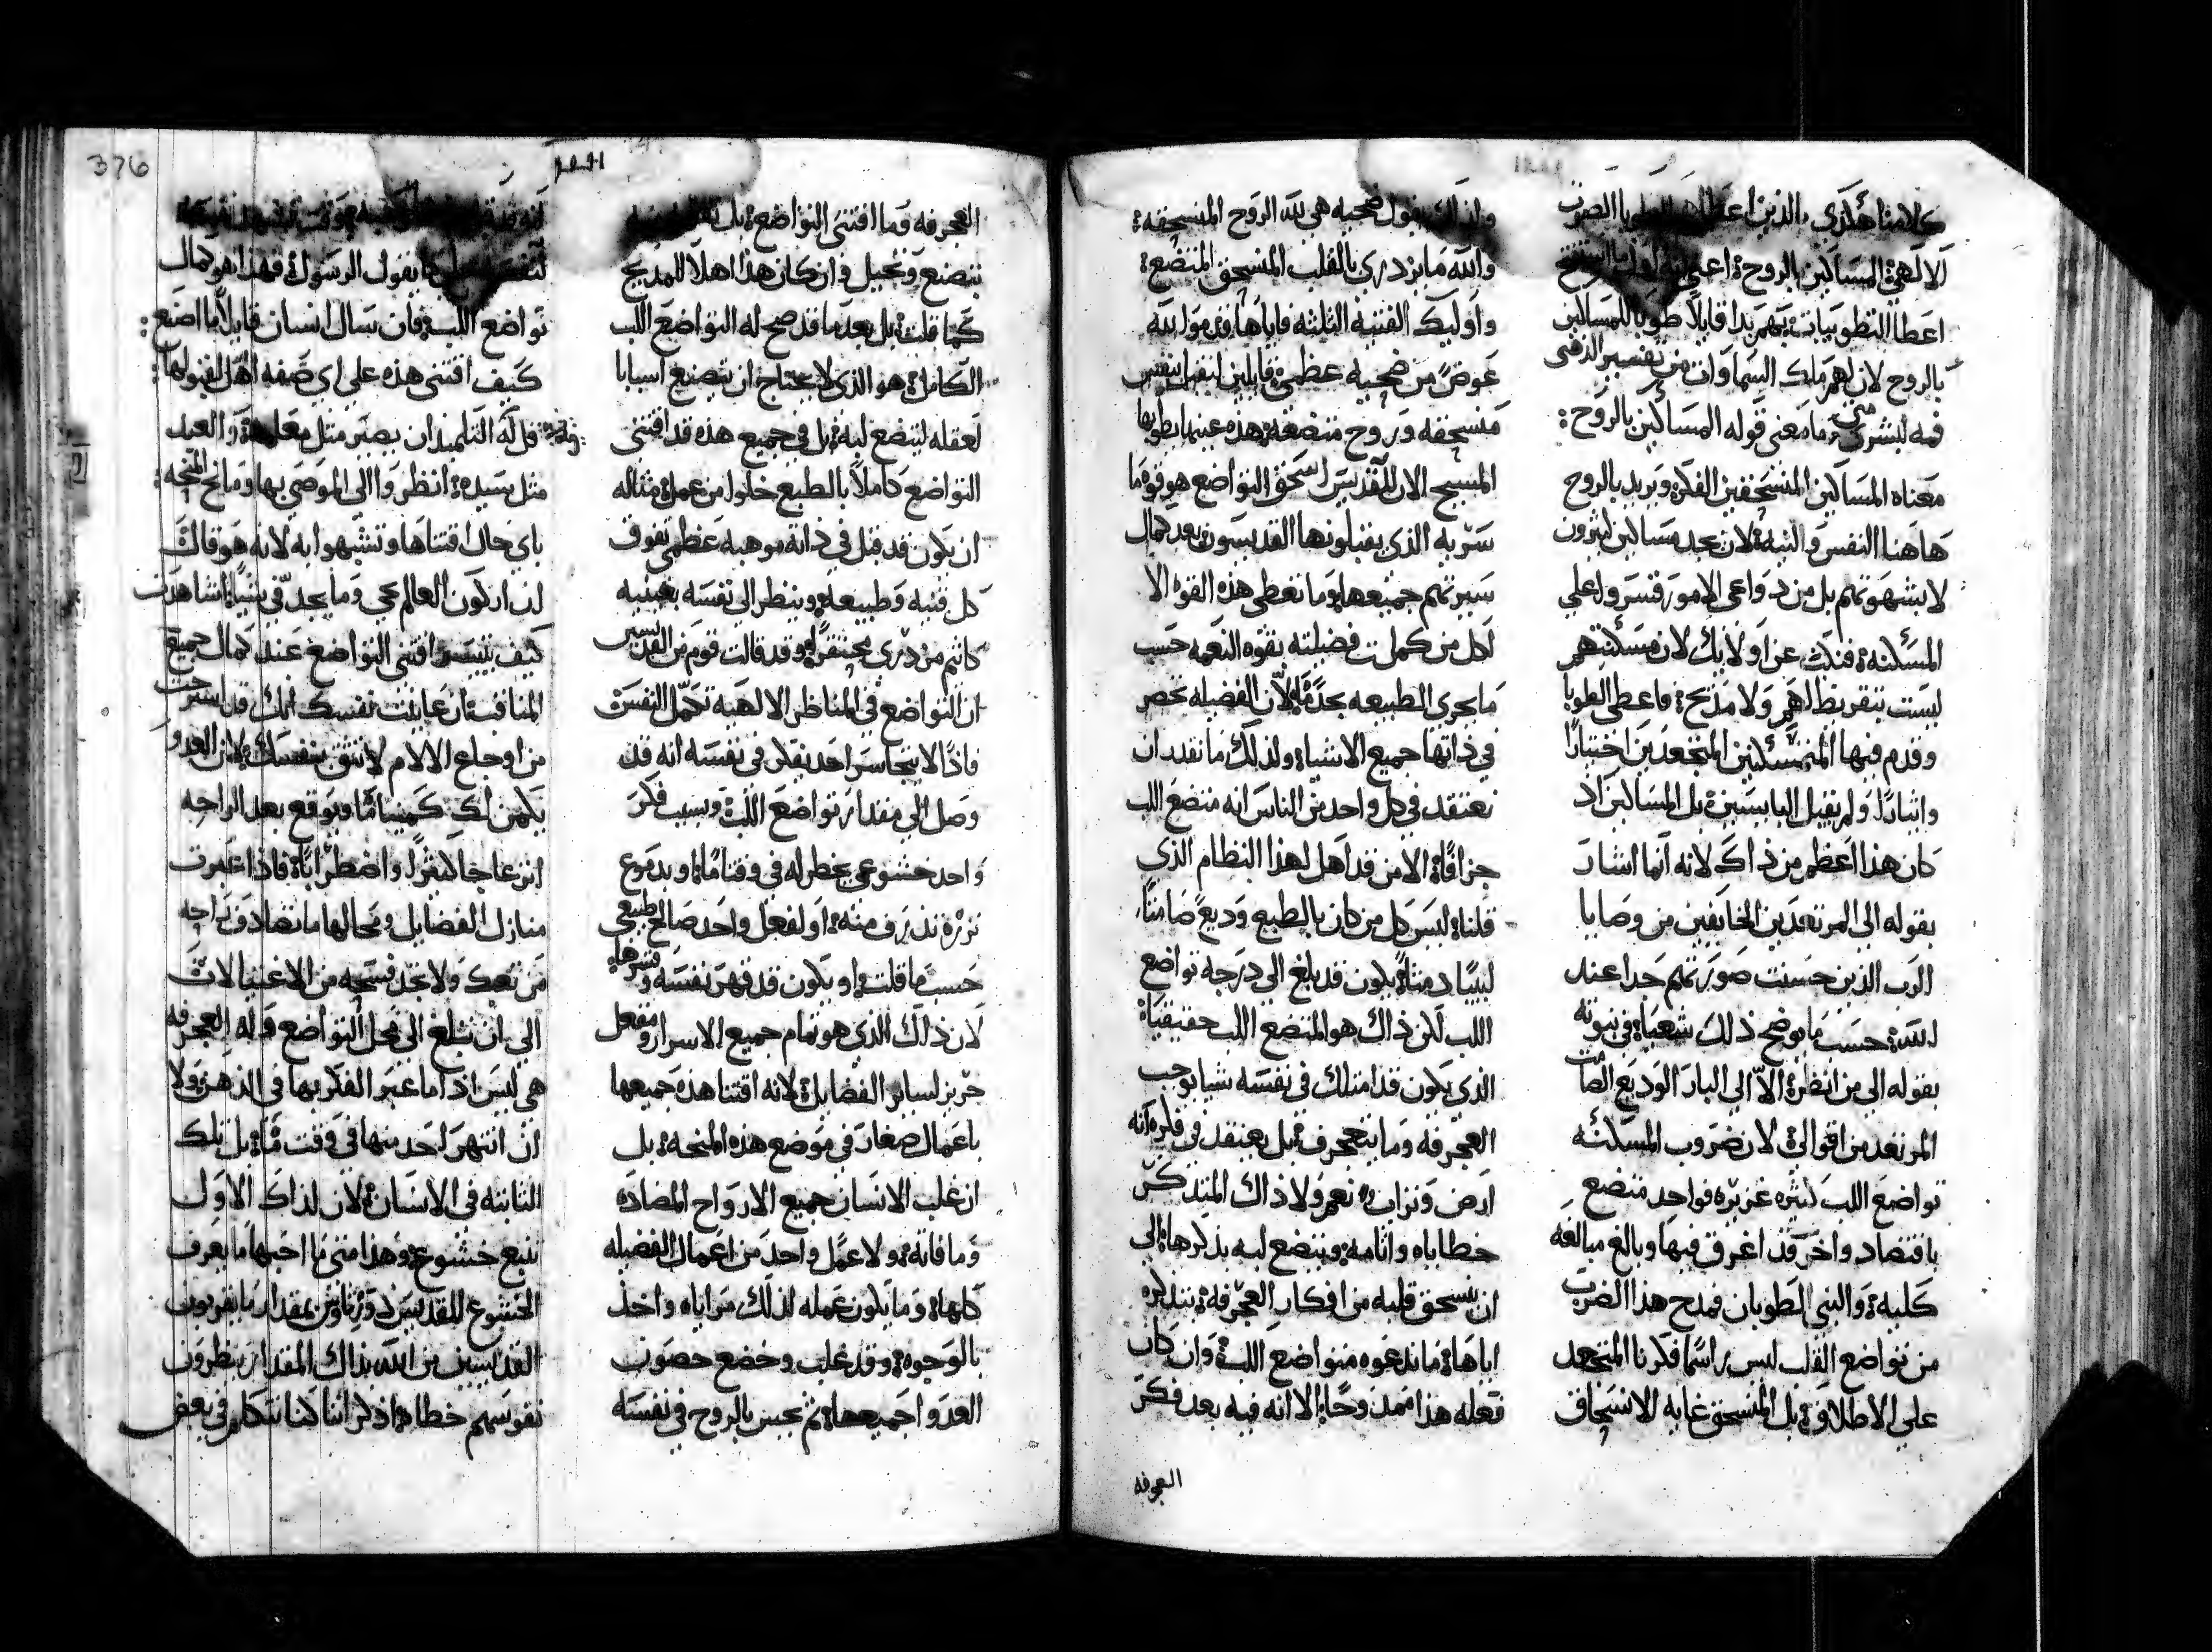 كلامنا هكذي الذين اعطا الطوبا الصوت
الالهي المساكين بالروح اعني
اعطا التطويبات بهم بدا قايلاً طوبا للمساكين
بالروح لان لهم ملك السماوات من تفسير الذهبى
فمه لبشرى متى ما معنى قوله المساكين بالروح
معناه المساكين المنسحقين الفكر ويريد بالروح
هاهنا النفس والنيه لان يجد مساكين كثيرون
لا بشهوتهم بل من دواعى الامور قسر ولعلى
المسكنه فنكث عن اولايك لان مسكنتهم
ليست بتقريظ لهم ولا مديح فاعطى الطوبا
وقدم فيها المتمسكنين المتجعدين اختيارًا
وايثارًا ولم يقبل البايسين بل المساكين اذ
كان هذا اعظم من ذاك لانه انما اشار
بقوله الى المرتعدين الخايفين من وصايا
الرب الذين حسنت صورتهم جدا عند
الله حسب ما يوضح ذلك شعيا في نبوته
بقوله الى من انظر الا الى البار الوديع الصامت
المرتعد من اقوالي لان ضروب المسكنه
تواضع اللب كثيره غزيره فواحد متضع
باقتصاد واخر قد اغرق فيها وبالغ مبالغه
كليه والنبي الطوبان فمدح هذا الضرب
من تواضع القلب ليس راسًا فكرنا المتجعد
على الاطلاق بل المنسحق غايه الانسحاق
ولذلك يقول ضحيه هي لله الروح المنسحقه
والله ما يزدري بالقلب المنسحق المتضع
واوليك الفتيه الثلثه فاياها قدموا لله
عوضً من ضحيه عظمى قايلين لنقبل بنفس
منسحقه وروح متضعه هذه عينها يطوبها
المسيح الان للقديس اسحق التواضع هو قوة ما
سريه الذي يقبلونها القديسون بعد كمال
سيرتهم جميعها وما تعطى هذه القوه الا
لكل من كملت فضيلته بقوه النعمه حسب
ما يجري الطبيعه بحدًما لان الفضيله تحصر
في ذاتها جميع الاشيا ولذلك ما نقدر ان
نعتقد في كل واحد من الناس انه متضع اللب
جزافًا الا من قد اهل لهذا النظام الذي
قلنا ليس كل من كان بالطبع وديع صامتًا
لبيبًا دمثًا يكون قد بلغ الى درجه تواضع
اللب لكن ذاك هو المتضع اللب حقيقيًا
الذي يكون قد امتلك في نفسه شيا يوجب
العجرفه وما يتعجرف بل يعتقد في فكره انه
ارض وتراب نعم ولا ذاك المتذكر
خطاياه واثامه ويتضع لبه بذكرها الى
ان ينسحق قلبه من افكار العجرفه بتذكره
اياها ما ندعوه متواضع اللب وان كان
فعله هذا ممدوحًا الا انه فيه بعد فكر
العجرفه
العجرفه وما اقتنى التواضع بل
بتصنع وتحيل وان كان هذا اهلا للمديح
كما قلت بل بعد ما قد صح له التواضع اللب
الكامل هو الذي لا يحتاج ان يتصنع اسبابا
لعقله ليتضع لبه بل في جميع هذه قد اقتنى
التواضع كاملاً بالطبع خلوا من عمل مثاله
ان يكون قد قبل في ذاته موهبه عظمى تفوق
كل قنيه وطبيعه وينظر الى نفسه بعينيه
كاثيم مزدري محتقرًا وقد قالت قوم من القديسين
ان التواضع في المناظر الالهيه تكمل النفس
فاذًا لا يتجاسر احد يفكر في نفسه انه قد
وصل الى مقدار تواضع اللب وبسبب فكر
واحد خشوعي يخطر له في وقتًا ما وبدموع
نزره تذرف منه او لفعل واحد صالح طبيعي
حسب ما قلت او يكون قد قهر نفسه وقسرها
لان ذلك الذي هو تمام جميع الاسرار ومفعل
حريز لساير الفضايل لانه اقتنا هذه جميعها
باعمال صغار في موضع هذه المنحه بل
ان غلب الانسان جميع الارواح المضاده
وما فاته ولا عمل واحد من اعمال الفضيله
كلها وما يكون عمله لذلك مراياه واخذ
بالوجوه وقد غلب وخضع حصون
العدوا جميعها ثم يحس بالروح في نفسه
انه قد
كما يقول الرسول فهذا هو كمال
تواضع اللب فان سال انسان قايلاً ما اصنع
كيف اقتنى هذه على اي صفه اهل لقبولها
قل له التلميذ ان يصير مثل معلمه والعبد
مثل سيده انظروا الى الموصي بها ومانح المنحه
باي حال اقتناها وتشبهوا به لانه هو قال
لنا اركون العالم يجي وما يجد في شيًا اشاهدت
كيف يتيسر اقتنى التواضع عند كمال جميع
المناقب ان عاينت نفسك انك قد استرحت
من اوجاع الالام لا تثق بنفسك لان العدو
يكمن لك كمينا ما ويتوقع بعد الراحه
انزعاجا كثيرًا واضطرابًا فاذا عبرت
منازل الفضايل ومحالها ما تصادف راحه
من تعبك ولا تجد فسحه من الاغتيالات
الى ان تبلغ الى محل التواضع قوله العجرفه
هي ليس اذا ما عبر الفكر بها في الذهن ولا
ان انتهر احد منها في وقت ما بل تلك
الثابته في الانسان لان لذاك الاول
تتبع خشوع وهذا متى ما احبها ما يعرف
الخشوع للقديس دوروثاوس بمقدار ما يقربون
القديسين من الله بذاك المقدار ينظرون
نفوسهم خطاه اذكر اننا كنا نتكلم في بعض
376